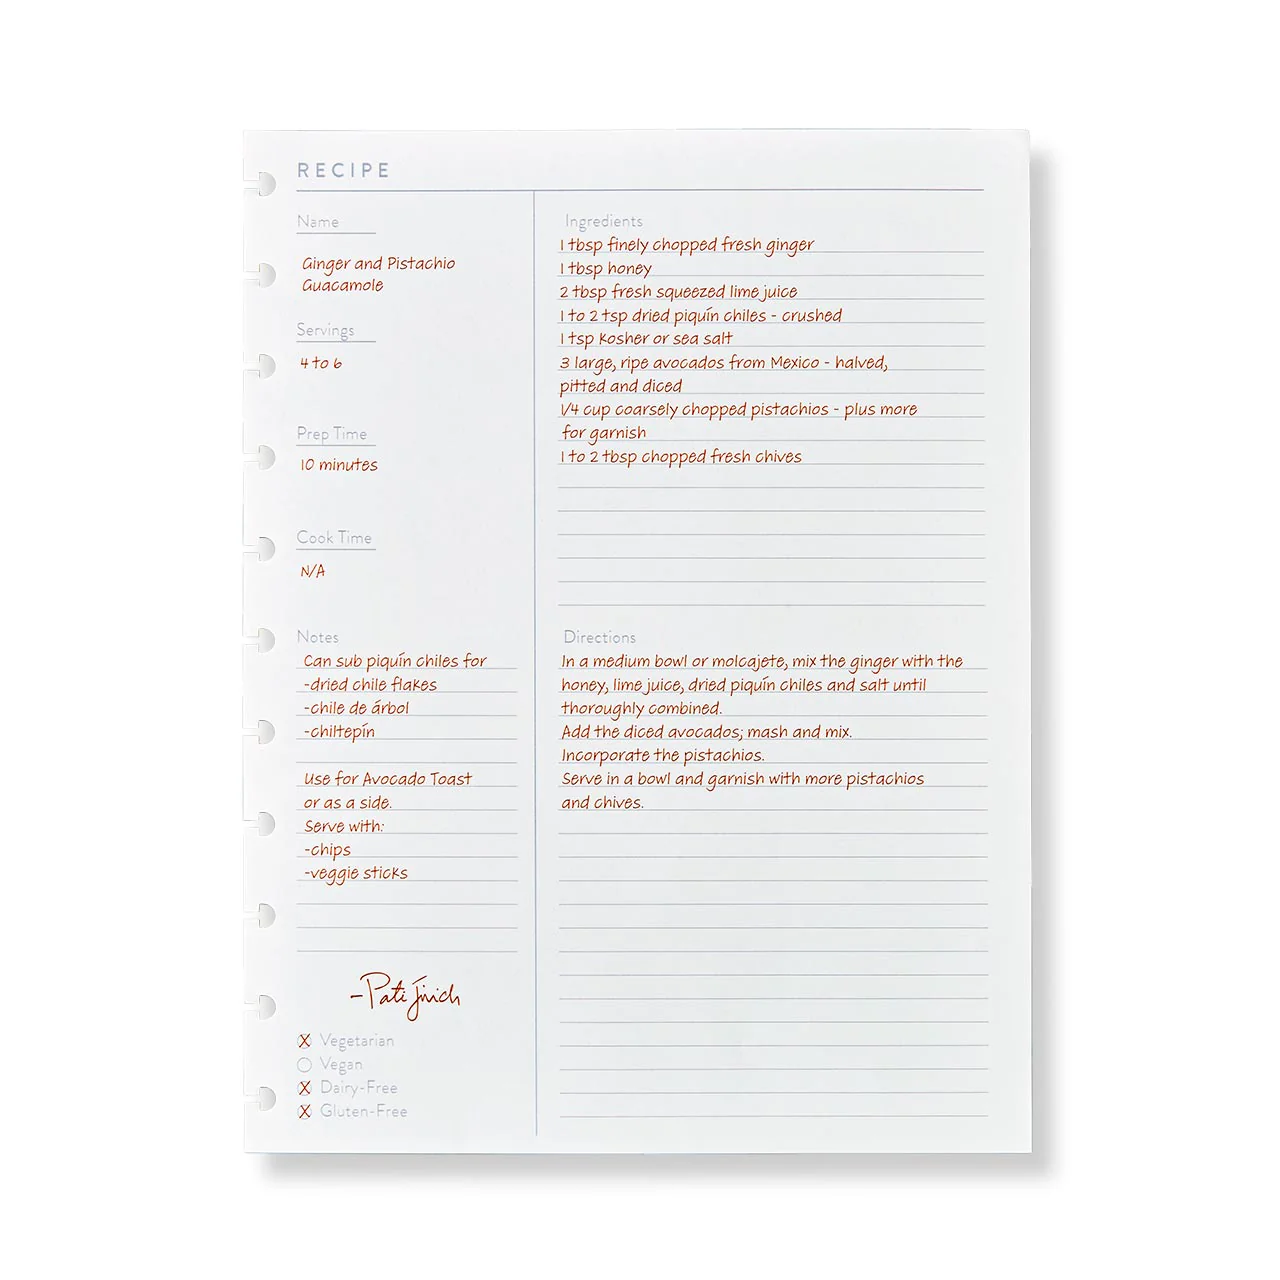 RECIPE
Name
Ginger and Pistachio
Guacamole
Servings
4 to 6
Prep Time
10 minutes
Cook Time
N/A
Notes
Can sub piquín chiles for
-dried chile flakes
-chile de árbol
-chiltepín
Use for Avocado Toast
or as a side.
Serve with:
-chips
-veggie sticks
-Pati Jinich
X Vegetarian
Vegan
X Dairy-Free
X Gluten-Free
Ingredients
1 tbsp finely chopped fresh ginger
1 tbsp honey
2 tbsp fresh squeezed lime juice
1 to 2 tsp dried piquín chiles - crushed
1 tsp Kosher or sea salt
3 large, ripe avocados from Mexico - halved,
pitted and diced
1/4 cup coarsely chopped pistachios - plus more
for garnish
1 to 2 tbsp chopped fresh chives
Directions
In a medium bowl or molcajete, mix the ginger with the
honey, lime juice, dried piquín chiles and salt until
thoroughly combined.
Add the diced avocados; mash and mix.
Incorporate the pistachios.
Serve in a bowl and garnish with more pistachios
and chives.